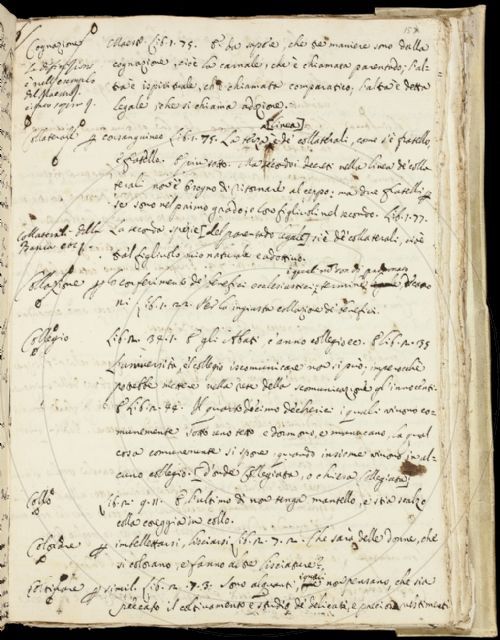 Cognazione Maestr. Lib. 1. 75. E da sapere, che tre maniere sono della
cognazione, cioè la carnale, che è chiamata parentado; l'al-
tra è ispirituale, ch'è chiamata comparatico; l'altra è detta
legale, che si chiama adozione.
Collaterali p consanguineo Lib. 1. 75. La terza [linea] è de' collaterali, come s'è fratello,
e sirocchie
teriali non è bisogno di ritornare al ceppo: ma due fratelli
se sono nel primo grado; e loro figliuoli nel secondo. Lib. 1. 77.
Collaterali della La seconda spezie [del parentado legale] si è de' collaterali, cioè
tral figliuolo mio naturale e adottivo.
Collazione p lo conferimento de' benefici ecclesiastici; termine
ni Lib. 1. 22. Per la ingiusta collazione de' benefici.
Collegio Lib. 2. 34. 1. E gli Abati c'anno collegio ec. E Lib. 2. 35
L'università, e 'l collegio iscomunicare non si può; imperocchè
potrebbe mettere nella rete della scomunicazione gl'innocenti.
E Lib. 2. 44. Il quartodecimo de' cherici i quali vivono co-
munemente sotto uno teto e dormono, e manucano, la qual
cosa comunemente si spone, quando insieme vivono in al-
cuno collegio. [d'onde Collegiata, o chiesa Collegiata]
Collo Lib. 2. 9. 11. E l'ultimo di non tenga mantello, e stia scalzo
colla coreggia in collo.
Colorare p imbellettarsi, lisciarsi Lib. 2. 7. 2. Che sarà delle donne, che
si colorano, e fanno altre lisciature?
Coltivare p simil. Lib. 2. 7. 3. Sono alquanti, i quali non pensano, che sia
peccato il coltivamento e studio de' delicati, e preziosi vestimenti